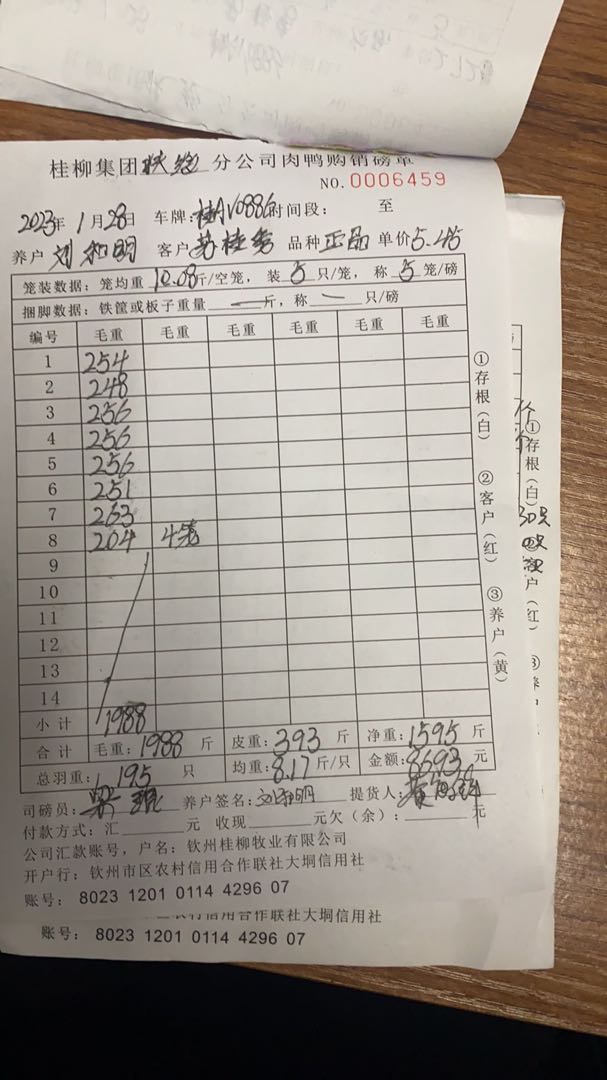 桂柳集团 分公司肉鸭购销磅单
NO.0006459
2023年1月28日 车牌:桂AV0886 时间段: 至
养户 刘和明 客户 苏桂 品种 正品 单价5.45
笼装数据: 笼均重10.08斤/空笼, 装5只/笼, 称5笼/磅
捆脚数据: 铁筐或板子重量 — 斤, 称 — 只/磅
编号 毛重 毛重 毛重 毛重 毛重 毛重
1 254
2 248
3 256
4 256
5 256
6 251
7 263
8 204 4笼
9
10
11
12
13
14
小计 1988
合计 毛重:1988斤 皮重:393斤 净重:1595斤
总羽重:195只 均重:8.17斤/只 金额:8693元
司磅员: 养户签名:刘和明 提货人:
付款方式:汇 元 收现 元欠(余): 元
公司汇款账号,户名:钦州桂柳牧业有限公司
开户行:钦州市区农村信用合作联社大垌信用社
账号: 8023 1201 0114 4296 07
①存根(白) ②客户(红) ③养户(黄)
农村信用合作联社大垌信用社
账号: 8023 1201 0114 4296 07
①存根(白)
户(红)
③